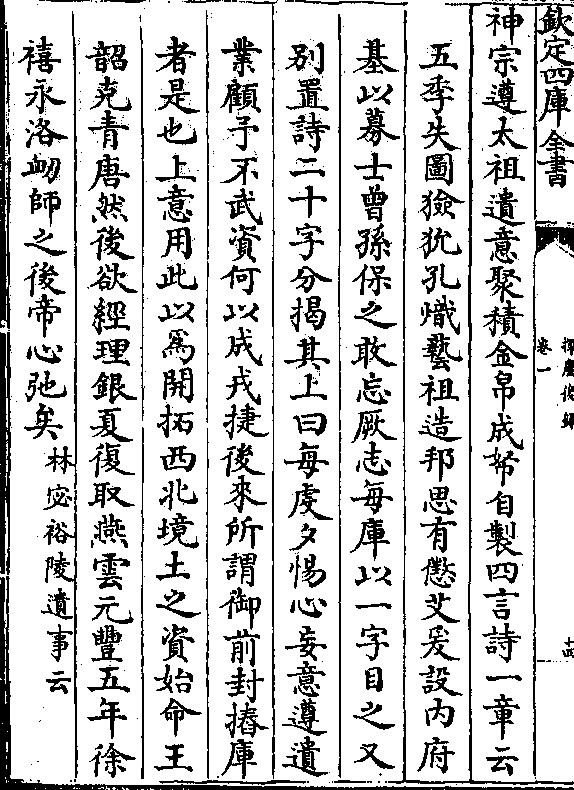 欽定四庫全書
揮麈後録
卷一
十四
神宗遵太祖遺意聚積金帛成帑自製四言詩一章云
五季失圖獫狁孔熾藝祖造邦思有懲艾爰設内府
基以募士曾孫保之敢忘厥志每庫以一字目之又
别置詩二十字分揭其上曰每䖍夕惕心妄意遵遺
業顧予不武資何以成戎捷後來所謂御前封樁庫
者是也上意用此以為開拓西北境土之資始命王
韶克青唐然後欲經理銀夏復取燕雲元豐五年徐
禧永洛衂師之後帝心弛矣林宓裕陵遺事云